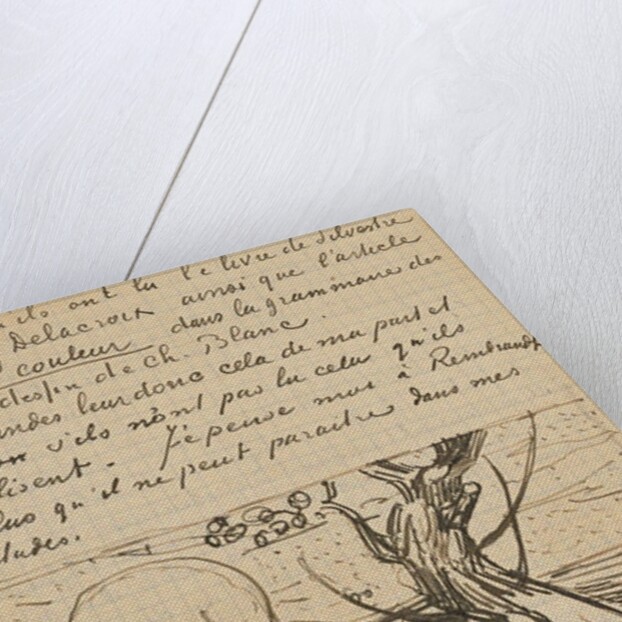 ils ont lu le livre de Silvestre
Delacroix ainsi que l'article
couleur dans la grammaire des
dessin de Ch. Blanc.
andes leur donc cela de ma part et
s'ils n'ont pas lu cela qu'ils
lisent. Je pense moi à Rembrandt
plus qu'il ne peut paraître dans mes
études.